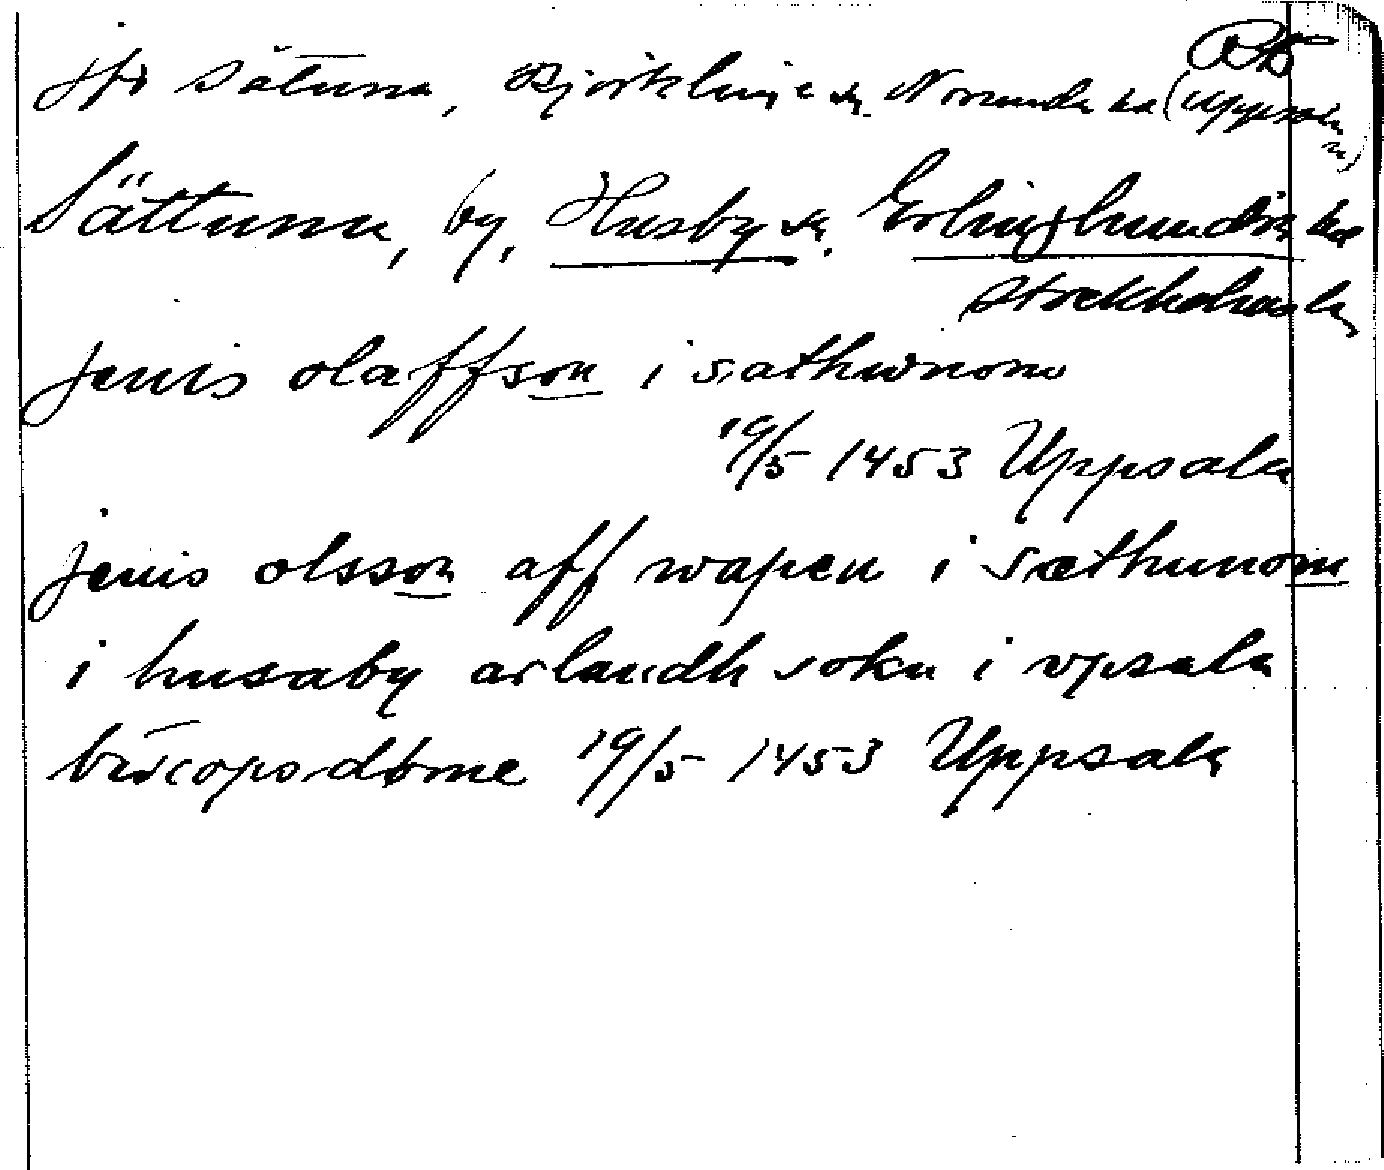 RA
jfr Sätuna, Björklinge sn. Norunda hd (Uppsala ln)
Sättuna, by, Husby sn. Erlinghundra hd
Stockholms ln
jenis olaffson i sathwnom
19/5 1453 Uppsala
jenis olsson aff wapen i sæthunom
i husaby arlandh sokn i vpsala
biscopsdøme 19/5 1453 Uppsala